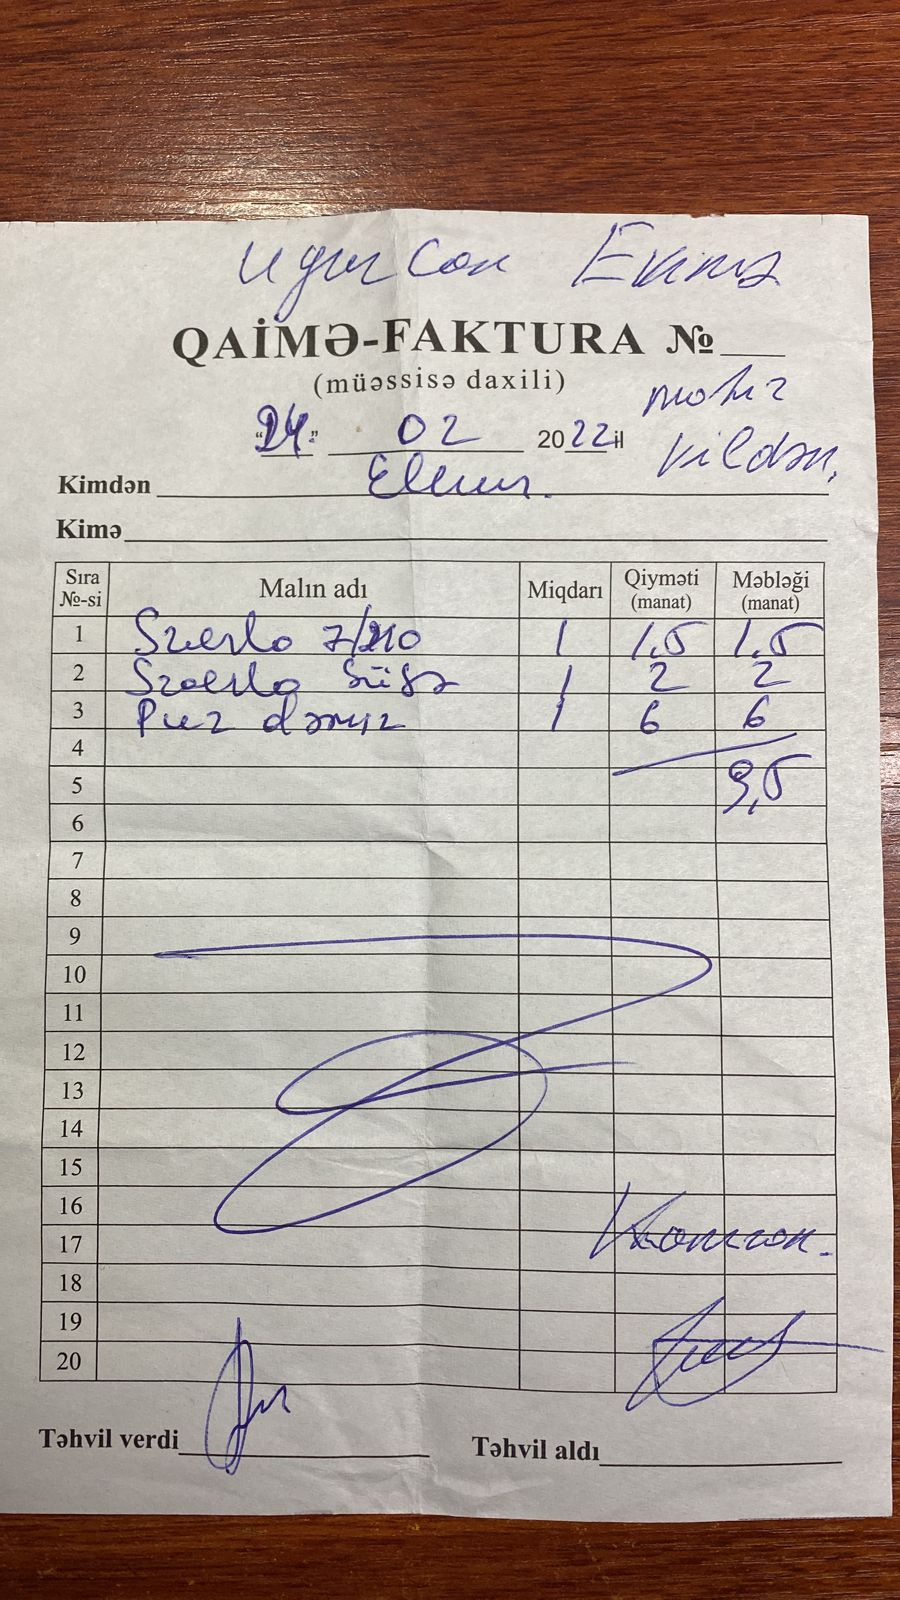 QAİMƏ-FAKTURA №
(müəssisə daxili)
"24" 02 2022 il
Kimdən Elnur.
Kimə
Sıra №-si Malın adı Miqdarı Qiyməti (manat) Məbləği (manat)
1 7/210 1 1.5 1.5
2 süşə 1 2 2
3 dəmir 1 6 6
4
5 9,5
6
7
8
9
10
11
12
13
14
15
16
17 Kamran.
18
19
20
Təhvil verdi Təhvil aldı